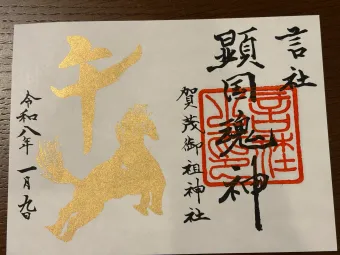 言社
顕国魂神
賀茂御祖神社
午
令和八年 一月九日